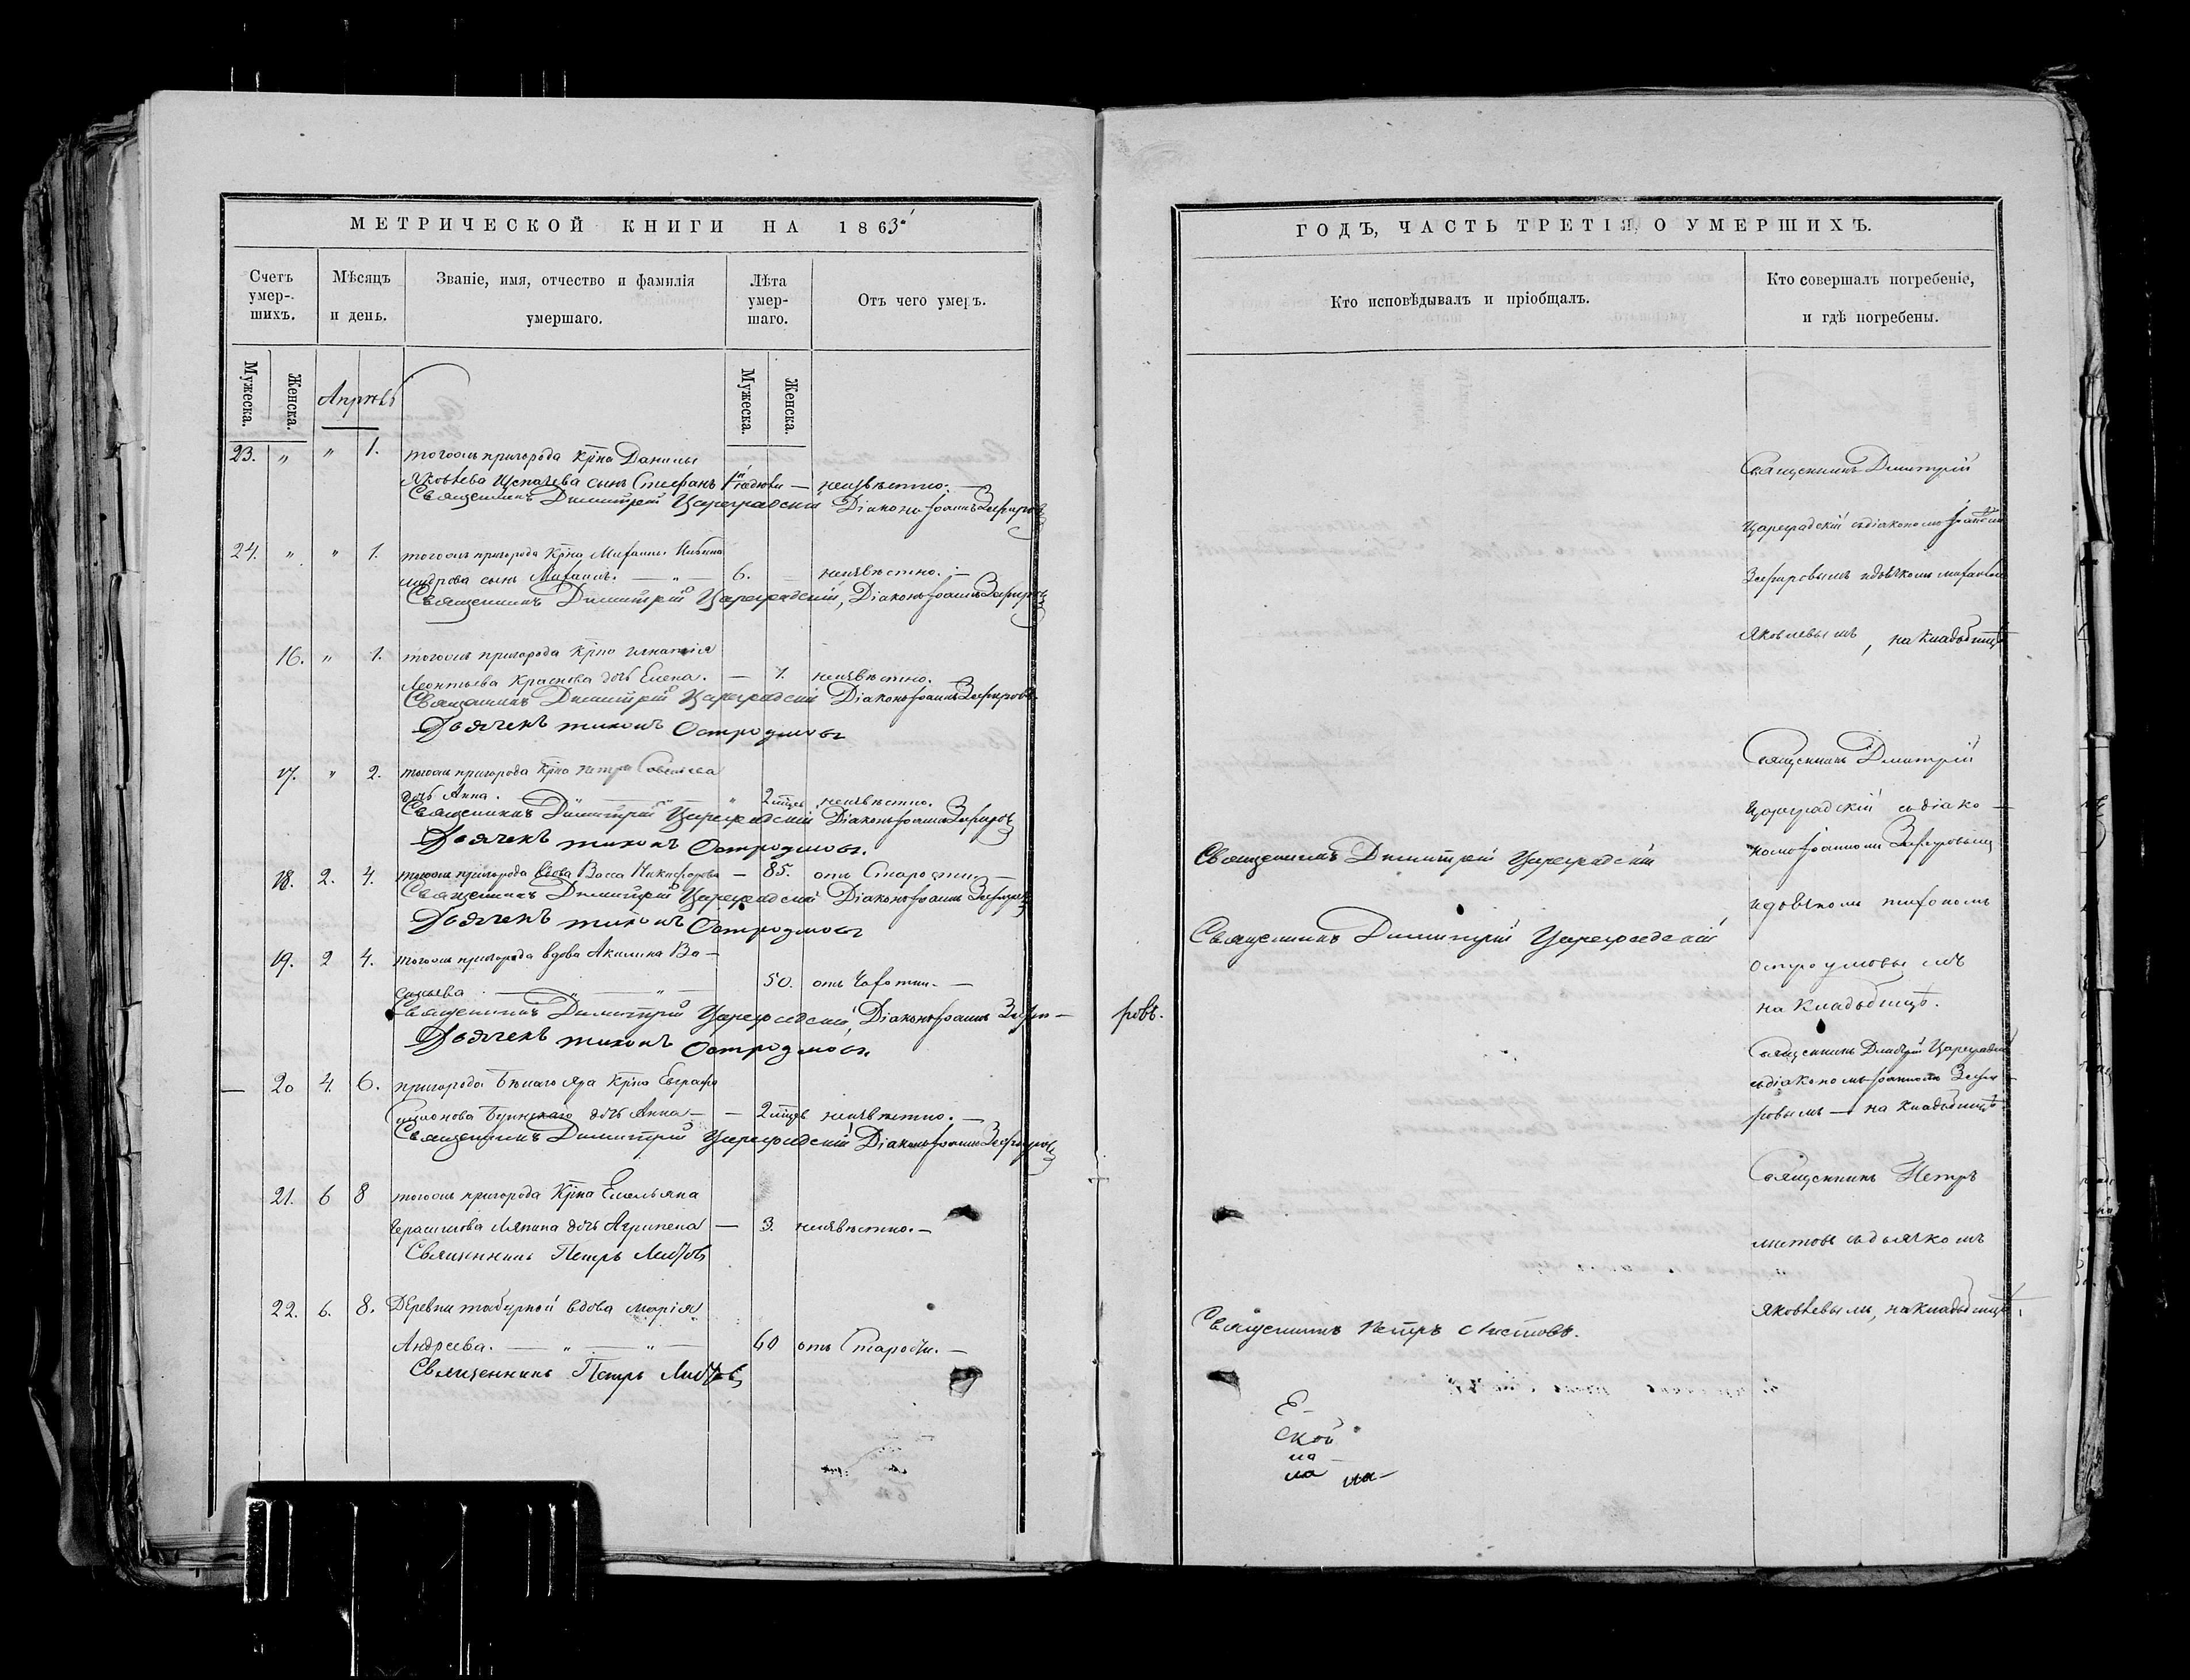 МЕТРИЧЕСКОЙ КНИГИ НА 1863й
Счетъ умер-шихъ.
Мѣсяцъ и день.
Званіе, имя, отчество и фамилія умершаго.
Лѣта умер-шаго.
Отъ чего умеръ.
Мужеска.
Женска.
Апрѣль
Мужеска.
Женска.
23. „ „ 1. тогожъ пригорода Крⷭ҇на Данилы
Яковлева сынъ Стефанъ неизвѣстно. —
Священникъ Димитрій Цареградскій Діаконъ Іоаннъ Зефировъ
24. „ „ 1. тогожъ пригорода Крⷭ҇на Михаила
сынъ Михаилъ. — „ — 6. неизвѣстно. —
Священникъ Димитрій Цареградскій, Діаконъ Іоаннъ Зефировъ
16. „ 1. тогожъ пригорода Крⷭ҇на Игнатія
Леонтьева Краснова дочь Елена. — 7. неизвѣстно.
Священникъ Димитрій Цареградскій Діаконъ Іоаннъ Зефировъ
Дьячекъ Тихонъ Остроумовъ
17. „ 2. тогожъ пригорода Крⷭ҇на Петра Савельева
дочь Анна. — „ — „ 2 мѣсц неизвѣстно.
Священникъ Димитрій Цареградскій Діаконъ Іоаннъ Зефировъ
Дьячекъ Тихонъ Остроумовъ.
18. 2. 4. тогожъ пригорода вдова Васса Никифорова — 85. отъ Старости. —
Священникъ Димитрій Цареградскій Діаконъ Іоаннъ Зефировъ
Дьячекъ Тихонъ Остроумовъ
19. 2 4. тогожъ пригорода вдова Акилина Ва-
сильева. — „ — „ — 50. отъ Чахотки. —
Священникъ Димитрій Цареградскій, Діаконъ Іоаннъ Зефи-
Дьячекъ Тихонъ Остроумовъ
— 20 4. 6. пригорода Бѣлаго Яра Крⷭ҇на Евграфа
дочь Анна — — 2 мѣсц неизвѣстно. —
Священникъ Димитрій Цареградскій Діаконъ Іоаннъ Зефировъ
21. 6 8 тогожъ пригорода Крⷭ҇на Емельяна
Герасимова Ляпина дочь Агрипена — 3. неизвѣстно. —
Священникъ Петръ Листовъ
22. 6. 8. Деревни Табурной вдова Марія
Андреева. — „ — „ — 60 отъ Старости. —
Священникъ Петръ Листовъ
ГОДЪ, ЧАСТЬ ТРЕТІЯ, О УМЕРШИХЪ.
Кто исповѣдывалъ и пріобщалъ.
Кто совершалъ погребеніе, и гдѣ погребены.
Священникъ Дмитрій
Цареградскій съ діакономъ Іоанномъ
Зефировымъ и дьячкомъ Михаиломъ
Яковлевымъ, на Кладбищѣ
Священникъ Дмитрій
Цареградскій съ діако-
номъ Іоанномъ Зефировымъ
Священникъ Димитрій Цареградскій
и дьячкомъ Тихономъ
Священникъ Димитрій Цареградскій
Остроумовымъ
на Кладбищѣ.
ровъ.
Священникъ Дмитрій Цареградскій
съ діакономъ Іоанномъ Зефи-
ровымъ — на Кладбищѣ.
Священникъ Петръ
Листовъ съ дьячкомъ
Яковлевымъ, на Кладбищѣ.
Священникъ Петръ Листовъ.
Е-
ской
на
на на-